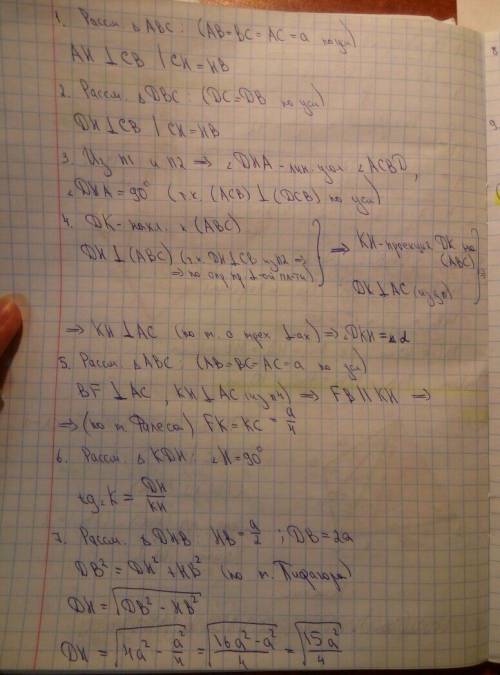 1. Рассм. ΔABC: (AB=BC=AC=a по усл)
AH⊥CB | CH=HB
2. Рассм. ΔDBC: (DC=DB по усл)
DH⊥CB | CH=HB
3. Из п1 и п2 ⇒ ∠DHA - лин. угол ∠ACBD,
∠DHA=90° (т.к. (ACB)⊥(DCB) по усл)
4. DK-накл. к (ABC)
DH⊥(ABC) (т.к DH⊥CB из п2 ⇒
⇒ по опр пр. ⊥-ой пл-ти)
⇒ KH-проекция DK на
(ABC)
DK⊥AC (из усл)
⇒ KH⊥AC (по т. о трех ⊥ах) ⇒ ∠DKH=∠α
5. Рассм. ΔABC: (AB=BC=AC=a по усл)
BF⊥AC, KH⊥AC (из п4) ⇒ FB||KH ⇒
⇒ (по т. Фалеса) FK=KC=a/4
6. Рассм. Δ KDH: ∠H=90°
tg∠K = DH/KH
7. Рассм. ΔDHB HB=a/2; DB=2a
DB²=DH²+HB² (по т. Пифагора)
DH=√(DB²-HB²)
DH=√(4a²-a²/4)=√((16a²-a²)/4)=√(15a²/4)